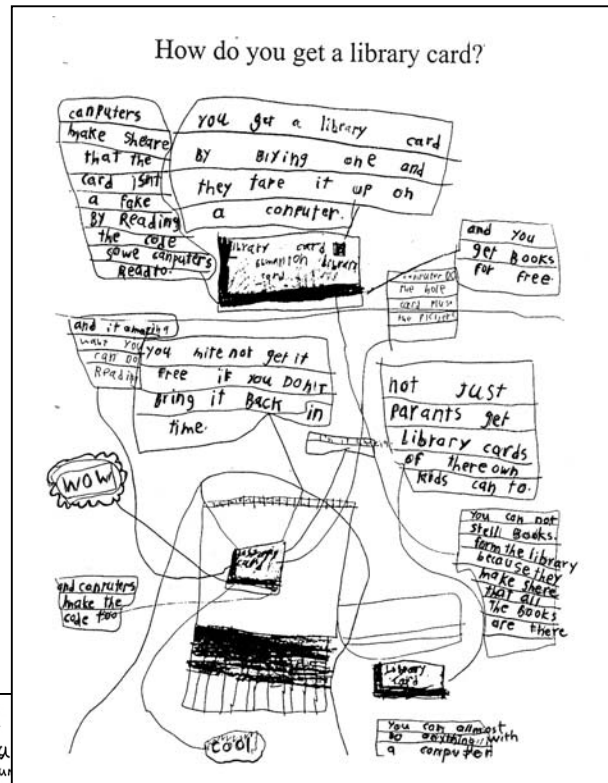 How do you get a library card?
canputers
make sheare
that the
card isnt
a fake
BY Reading
the code
sowe canputers
Read to.
you get a library card
BY BIYING one and
they tare it up on
a conputer.
library card
library
card
and you
get Books
for free.
computer DO
the hole
card plus
the picisher
and it amazing
what you
can DO
Reading
you mite not get it
free if you DON'T
Bring it Back in
time.
not JUST
Parants get
Library cards
of there own
Kids can to.
WOW
library
card
You can not
stell Books.
form the library
because they
make shere
that all
the Books
are there
and conputers
make the
code too
Library
card
cool
You can allmost
DO anything with
a computer